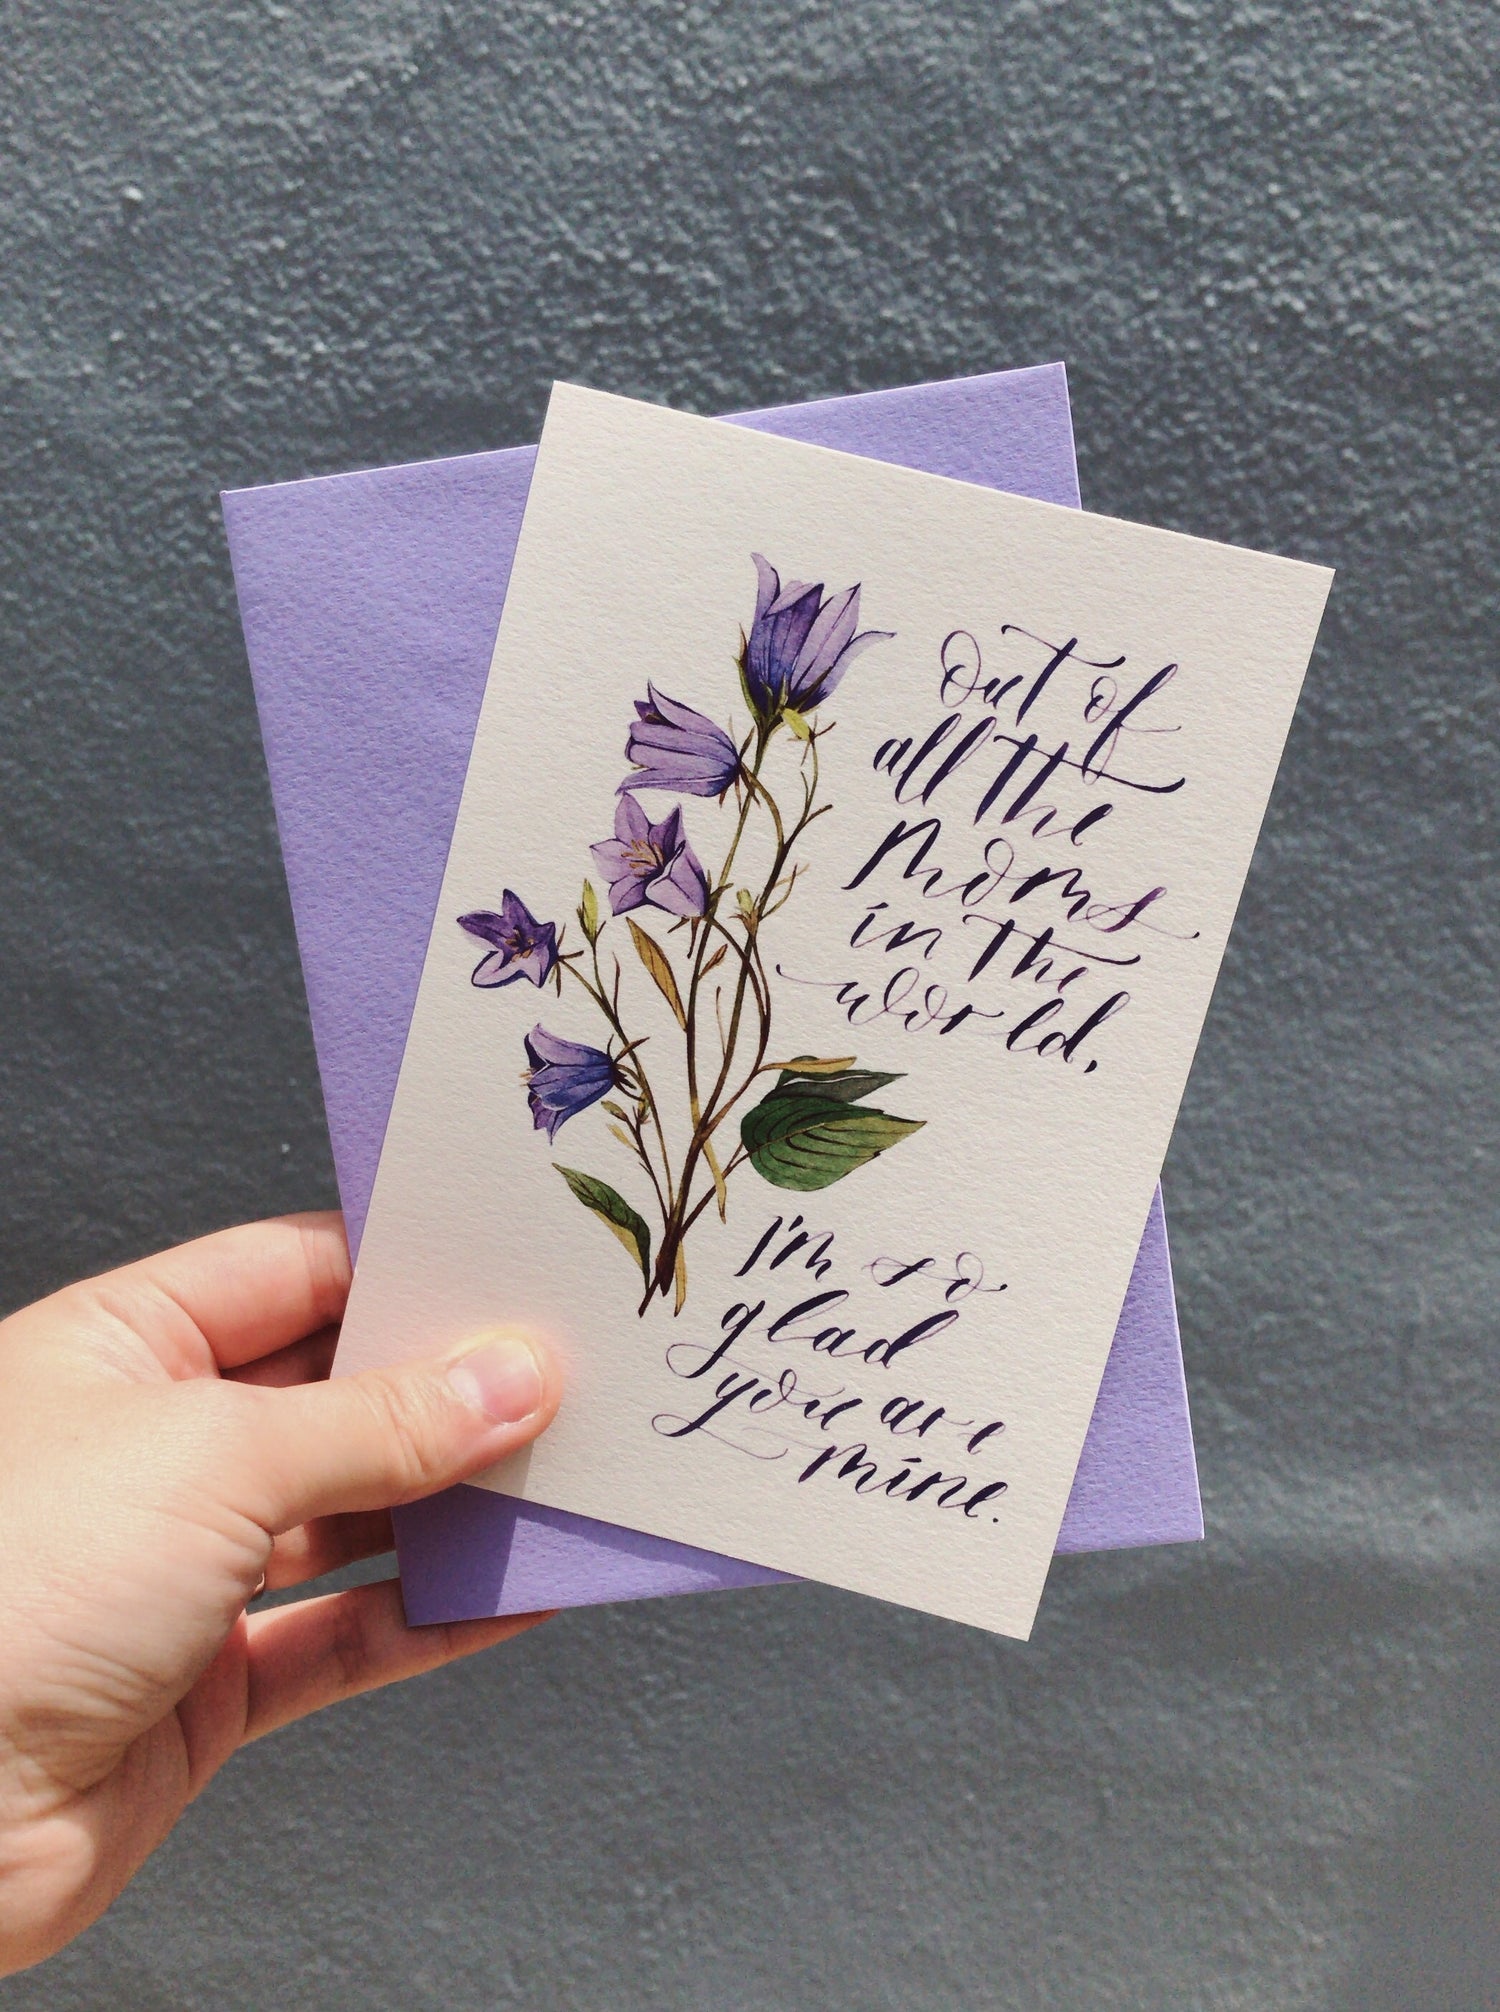 Out of
all the
Moms
in the
world,
I'm so
glad
you are
mine.